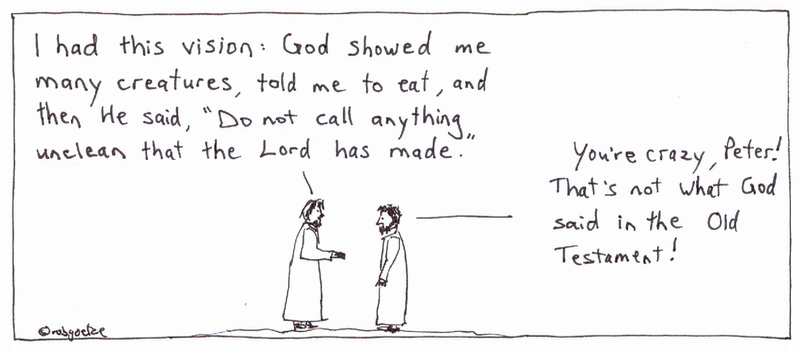 I had this vision: God showed me
many creatures, told me to eat, and
then He said, "Do not call anything
unclean that the Lord has made."
You're crazy, Peter!
That's not what God
said in the Old
Testament!
©robgoetze